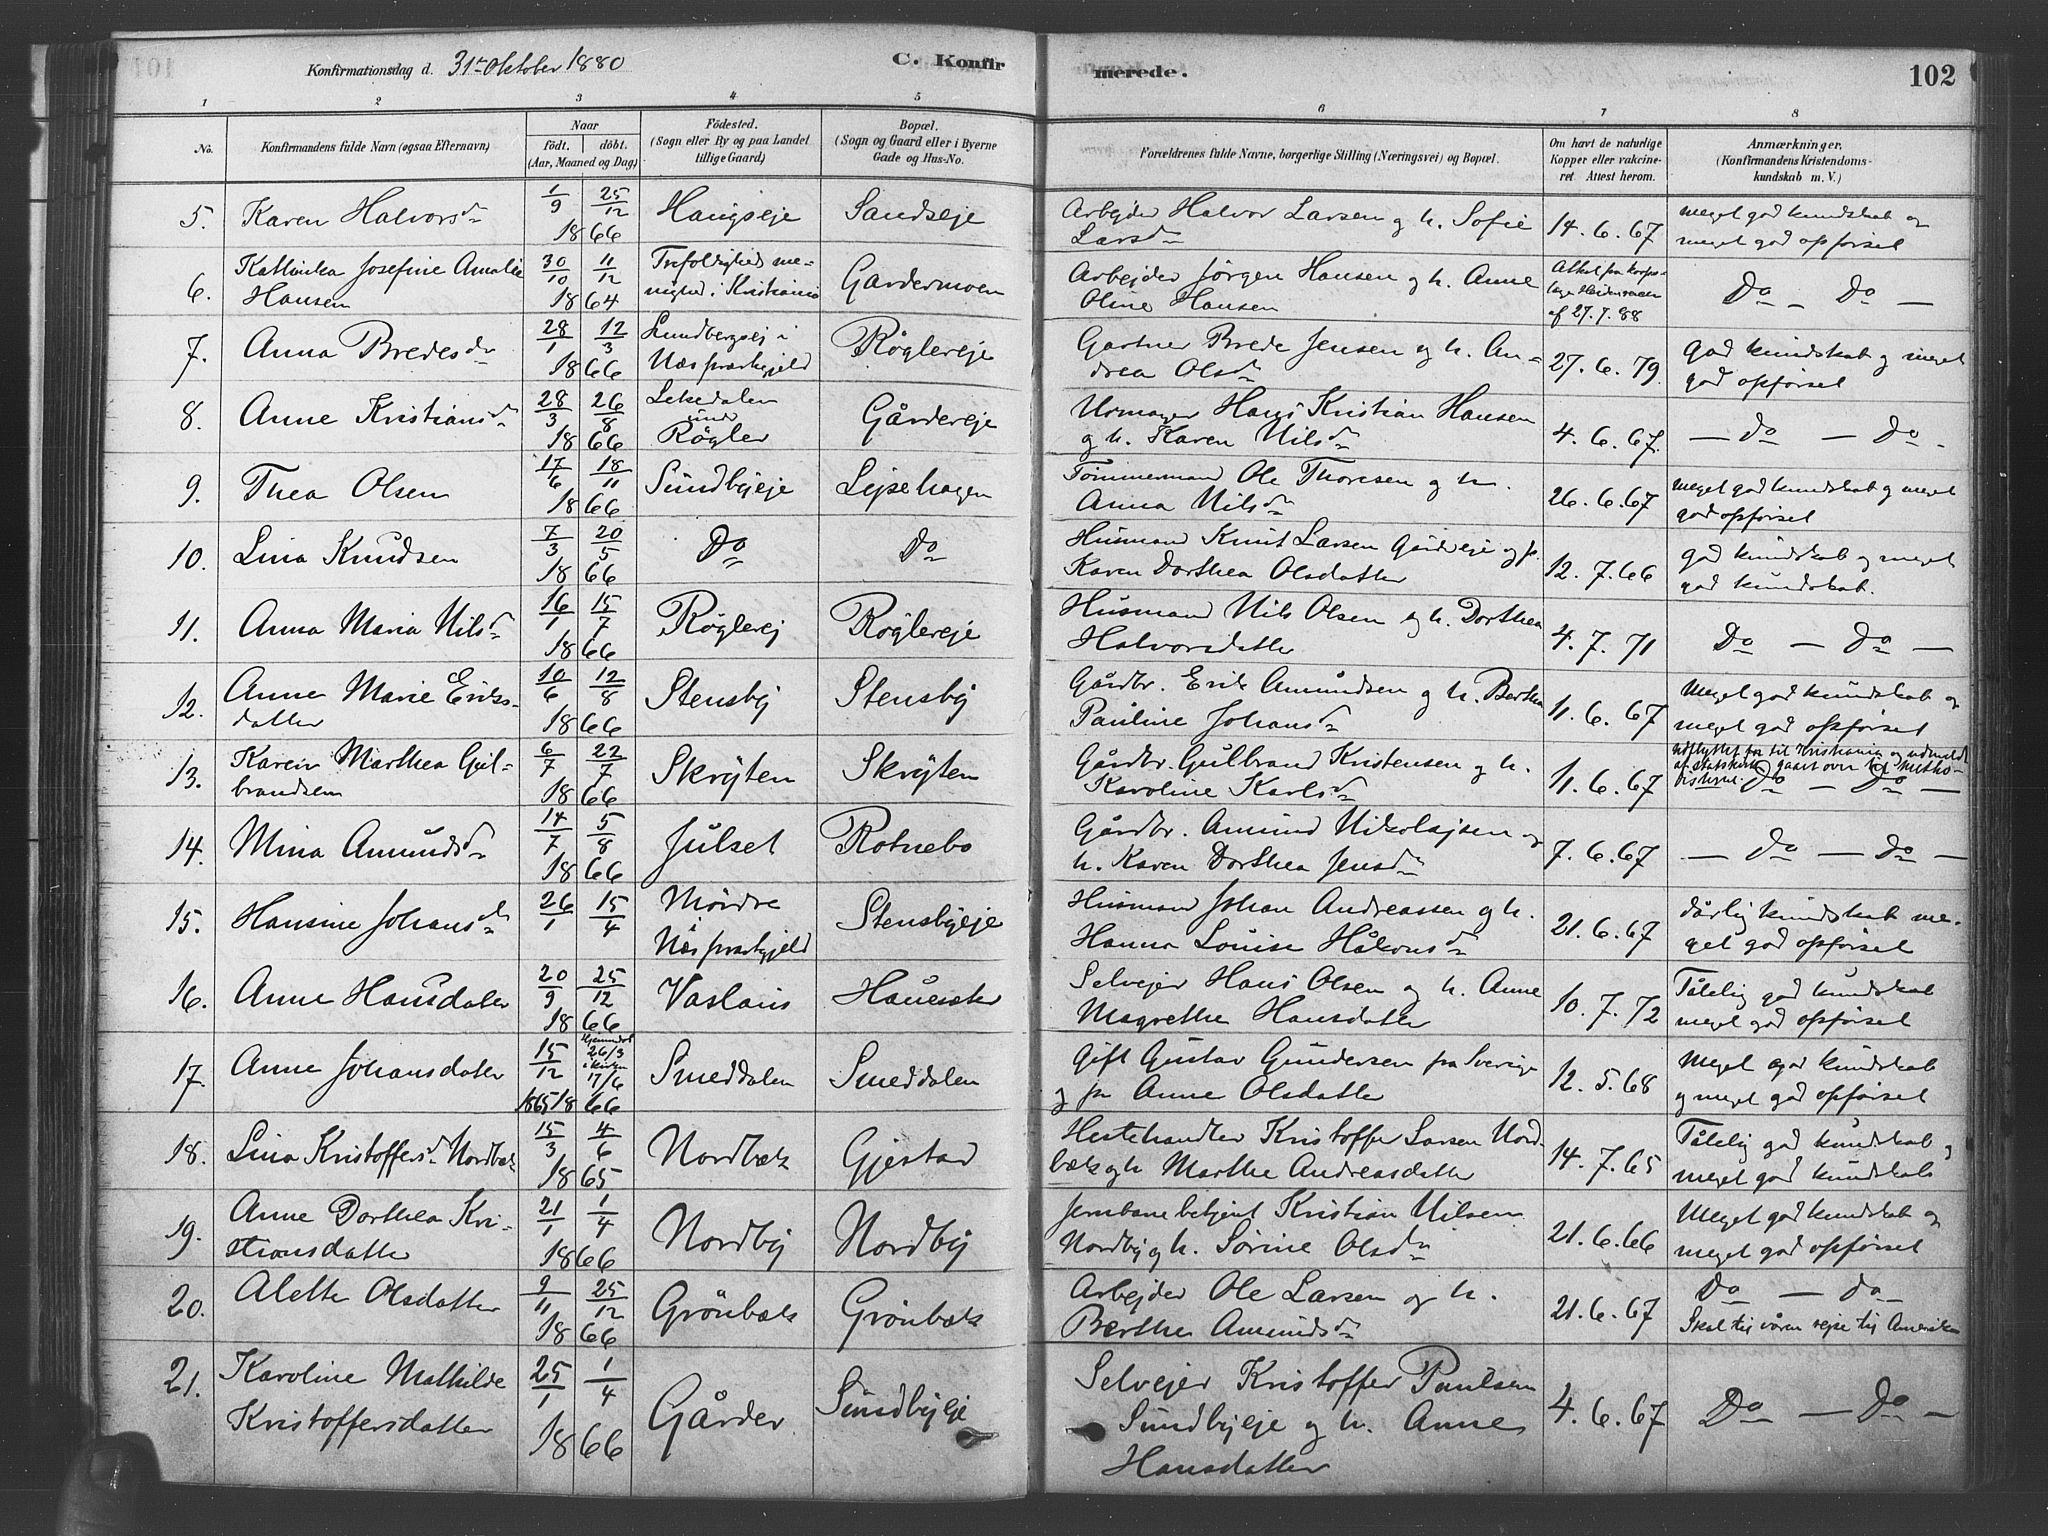 Konfirmationsdag d. 31te Oktober 1880
C. Konfirmerede.
102
1 2 3 4 5 6 7 8
No.
Konfirmandens fulde Navn (ogsaa Efternavn)
Naar
födt. döbt.
(Aar, Maaned og Dag)
Födested.
(Sogn eller By og paa Landet
tillige Gaard)
Bopæl.
(Sogn og Gaard eller i Byerne
Gade og Hus-No.
Forældrenes fulde Navne, borgerlige Stilling (Næringsvei) og Bopæl.
Om havt de naturlige
Kopper eller vakcine-
ret. Attest herom.
Anmærkninger.
(Konfirmandens Kristendoms-
kundskab m. V.)
5. Karen Halvorsd. 1/9 25/12 1866 Haugseje Sandseje Arbejder Halvor Larsen g h. Sofie
Larsd. 14.6.67 meget god kundskab og
meget god opförsel
6. Kathinka Josefine Amalie
Hansen 30/10 11/12 1864 Trefoldigheds me-
nighed i Kristiania Gardermoen Arbejder Jörgen Hansen g h. Anne
Oline Hansen af 27.7.88 Do – Do –
7. Anna Bredesd. 28/1 12/3 1866 Sundbergsej i
Næs præstegjeld Röglereje Gartner Brede Jensen og h. An-
drea Olsd. 27.6.79. god kundskab og meget
god opförsel
8. Anne Kristiansd. 28/3 26/8 1866 Lekedalen
und
Rögler Gårdereje Urmager Hans Kristian Hansen
g h. Karen Nilsd. 4.6.67. – do – Do –
9. Thea Olsen 17/6 18/11 1866 Sundbyeje Lejsehagen Tömmermand Ole Thoresen g h.
Anna Nilsd. 26.6.67 meget god kundskab og meget
god opförsel
10. Lina Knudsen 7/3 20/5 1866 Do Do Husmand Knut Larsen Gårdereje og h.
Karen Dorthea Olsdatter 12.7.66 god kundskab og meget
god kundskab.
11. Anna Maria Nilsd. 16/1 15/7 1866 Röglerej Röglereje Husmand Nils Olsen og h. Dorthea
Halvorsdatter 4.7.71 Do – Do –
12. Anne Marie Eriks-
datter 10/6 12/8 1866 Stensby Stensby Gårdbr. Erik Amundsen g h. Berthe
Pauline Johansd. 11.6.67 Meget god kundskab og
meget god opförsel
13. Karen Marthea Gul-
brandsen 6/7 22/7 1866 Skrýten Skrýten Gårdbr. Gulbrand Kristensen g h.
Karoline Karlsd. 11.6.67 udflyttet til Kristiania og udmeldt
af statskirken gaaet over til metho-
disterne. Do – Do –
14. Mina Amundsd. 14/7 5/8 1866 Julset Rotnebo Gårdbr. Amund Nikolajsen og
h. Karen Dorthea Jensd. 7.6.67 – Do – Do –
15. Hansine Johansd. 26/1 15/4 Mördre
Næs præstegjeld Stensbyeje Husmand Johan Andreassen g h.
Hanna Louise Håkonsd. 21.6.67 dårlig kundskab me-
get god opförsel
16. Anne Hansdater 20/9 25/12 1866 Hans Olsen g h. Anne
Magrethe Hansdatter 10.7.72 Tålelig god kundskab
meget god opförsel
17. Anne Johansdater 15/12 1865 Hjemmedöbt
26/3
i kirken
17/6 1866 Smeddalen Smeddalen Gift Gustav Gundersen fra Sverige
og pn Anne Olsdatter 12.5.68 Meget god kundskab
og meget god opförsel
18. Lina Kristoffersd. Nordbæk 15/3 4/6 1865 Nordbæk Gjestad Hestehandler Kristoffer Larsen Nord-
bæk g h Marthe Andreasdatter 14.7.65 Tålelig god kundskab og
meget god kundskab
19. Anne Dorthea Kri-
stiansdatter 21/1 1/4 1866 Nordby Nordby Jernbanebetjent Kristian Nilsen
Nordby g h. Sörine Olsd. 21.6.66 Meget god kundskab og
meget god opförsel
20. Alette Olsdatter 9/11 25/12 1866 Grönbæk Grönbæk Arbejder Ole Larsen og h.
Berthe Amundsd. 21.6.67 Do – do
Skal til våren rejse til Amerika
21. Karoline Mathilde
Kristoffersdatter 25/1 1/4 1866 Gårder Sundbyeje Selvejer Kristoffer Paulsen
Sundbyeje og h. Anne
Hansdatter 4.6.67 Do – Do –